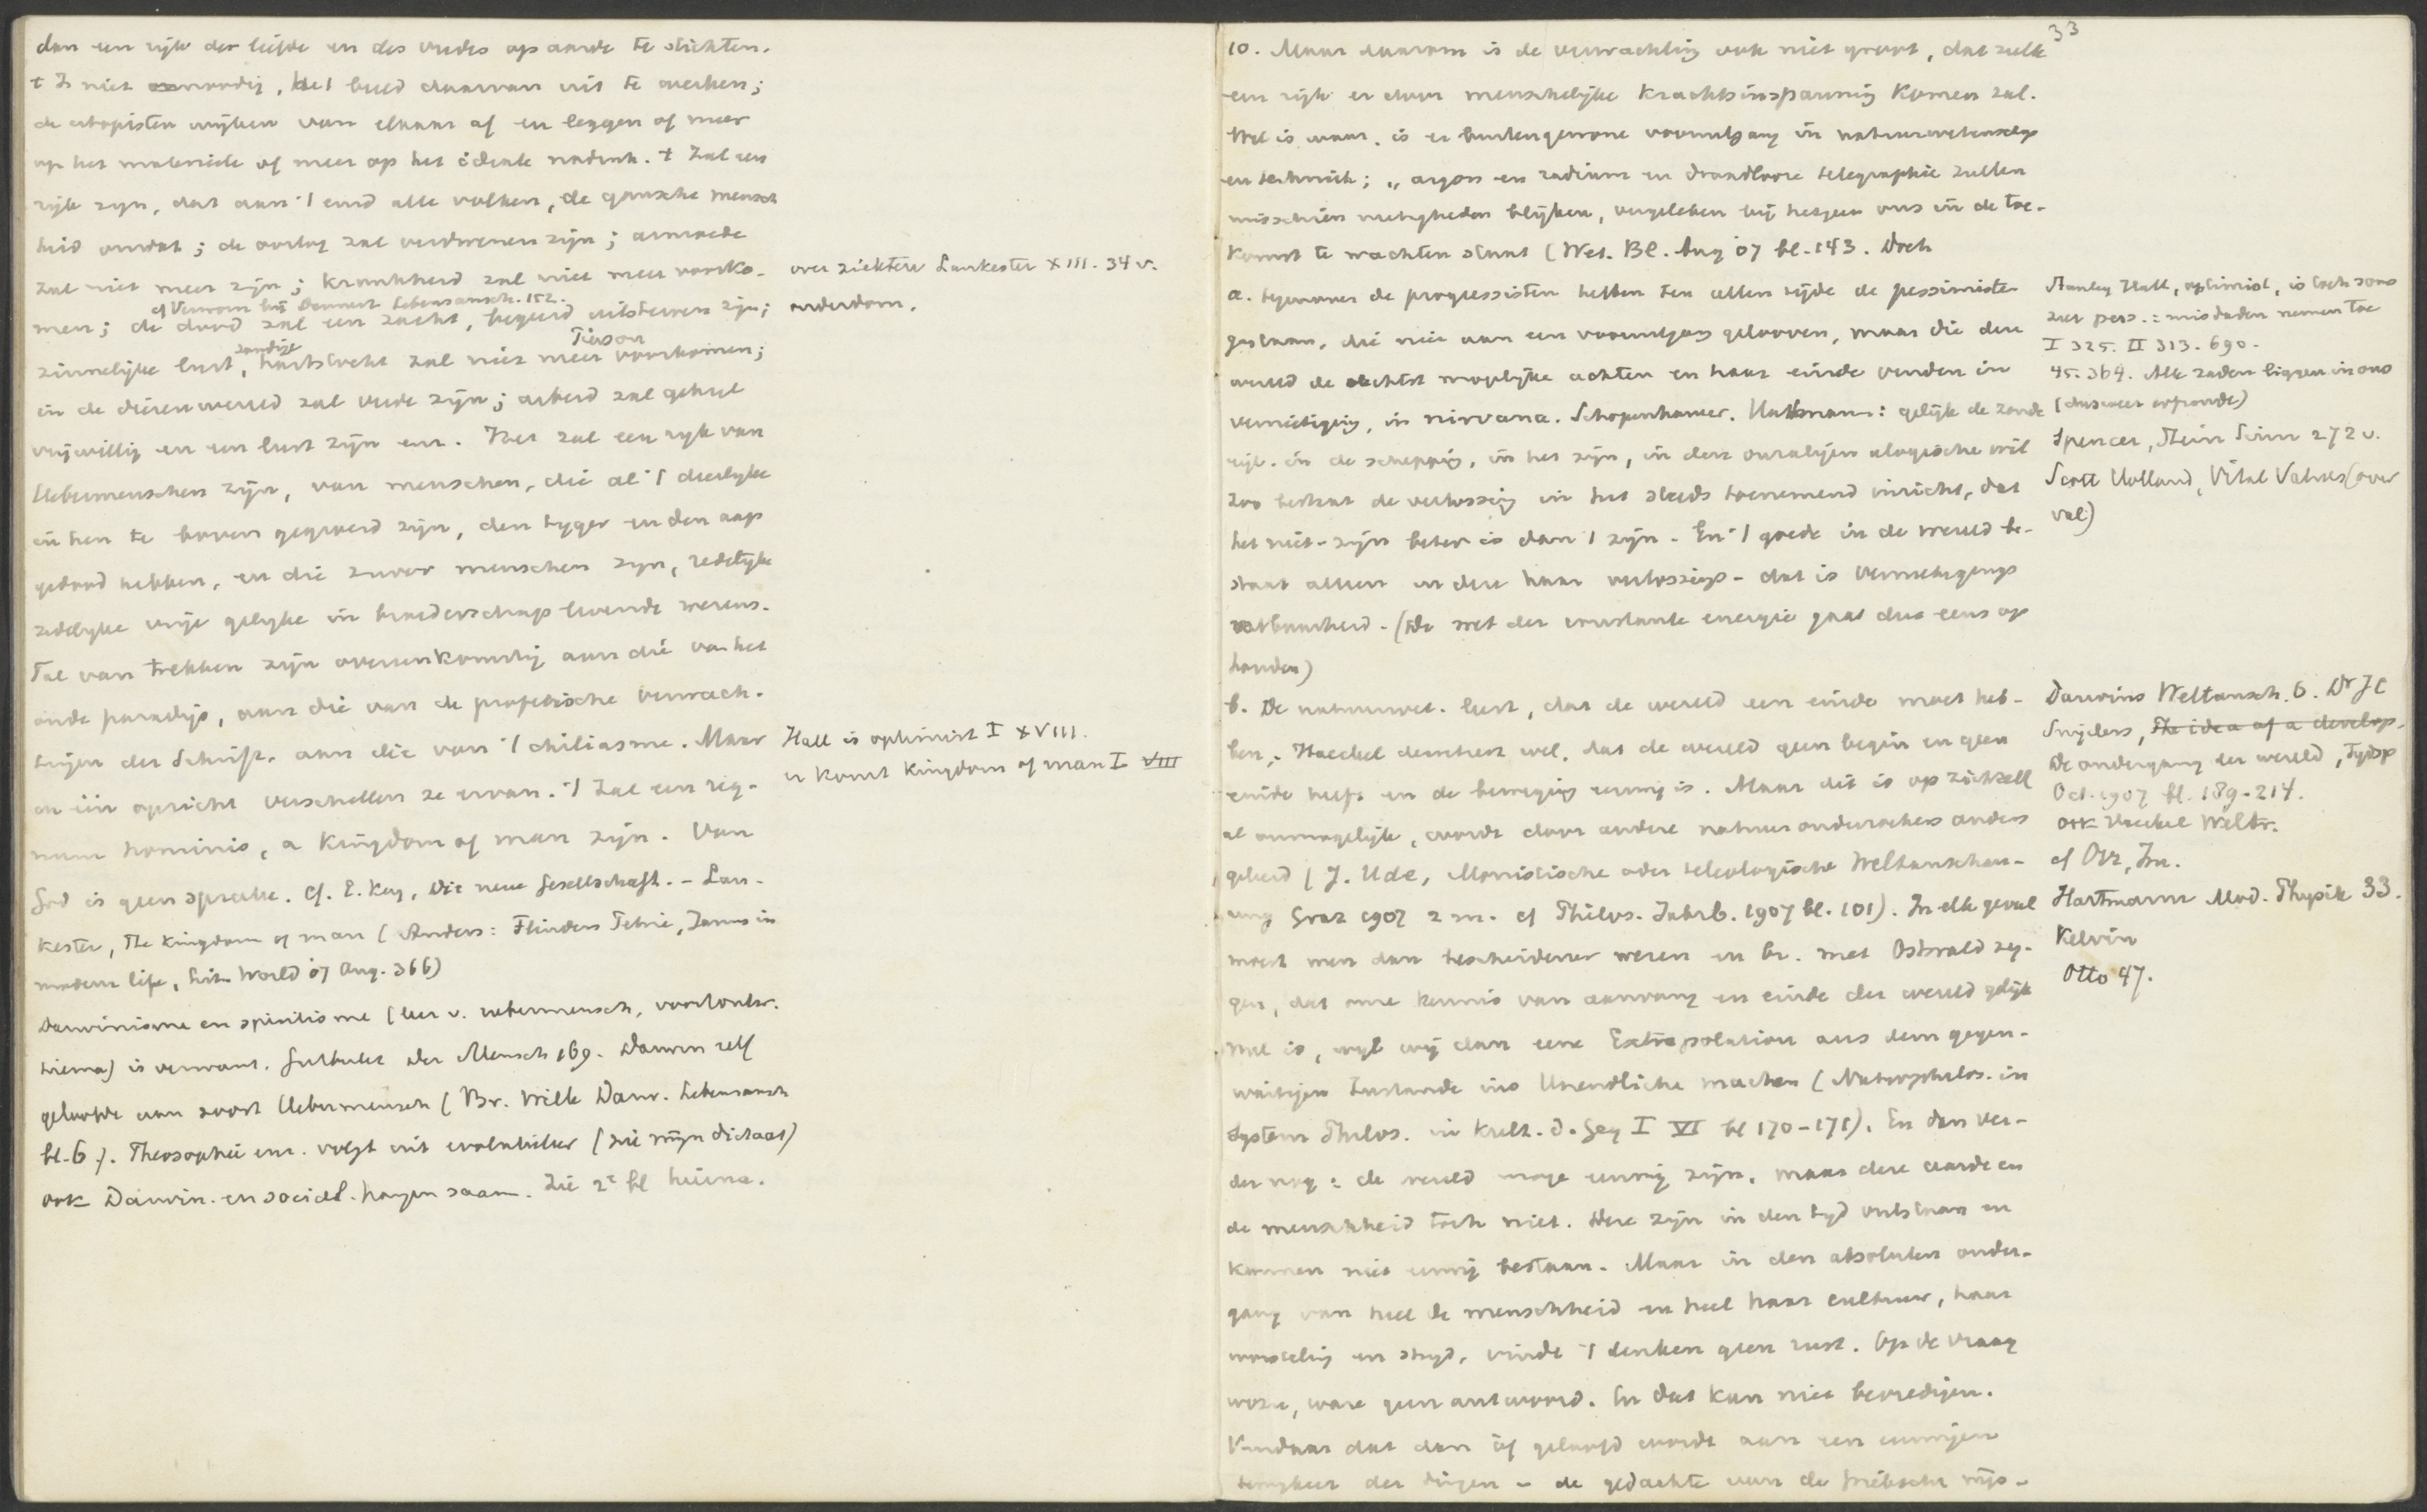 dan een rijk der liefde en des vredes op aarde te stichten.
't Is niet noodig, het beeld daarvan uit te werken;
de utopisten wijken van elkaar af en leggen of meer
op het materieele of meer op het ideale nadruk. 't Zal een
rijk zijn, dat aan 't eind alle volken, de gansche mensch
heid omvat; de oorlog zal verdwenen zijn; armoede
zal niet meer zijn; krankheid zal niet meer voorko-
cf Verworn bij Dennert Lebensansch. 152.
men; de dood zal een zacht, begeerd uitsterven zijn;
zondige Tierson
zinnelijke lust, hartstocht zal niet meer voorkomen;
in de dierenwereld zal vrede zijn; arbeid zal geheel
vrijwillig en een lust zijn enz. Het zal een rijk van
Uebermenschen zijn, van menschen, die al 't dierlijke
in hen te boven gegroeid zijn, den tyger en den aap
gedood hebben, en die zuiver menschen zijn, redelijke
zedelijke vrije gelijke in broederschap levende wezens.
Tal van trekken zijn overeenkomstig aan die van het
oude paradijs, aan die van de profetische verwach-
tingen der Schrift, aan die van 't chiliasme. Maar
in één opzicht verschillen ze ervan. 't Zal een reg-
num hominis, a Kingdom of man zijn. Van
God is geen sprake. Cf. E. Key, Die neue Gesellschaft. - Lan-
kester, The Kingdom of man (Anders: Flinders Petrie, Janus in
modern life, Lit. World 07 Aug. 366)
Darwinisme en spiritisme (leer v. uebermensch,
) is verwant. Gutberlet Der Mensch 169. Darwin zelf
geloofde aan soort Uebermensch (Br. Wille Darw. Lebensansch
bl. 6). Theosophie enz. volgt uit evolutieleer (zie mijn dictaat)
ook Darwin. en sociol. hangen saam. Zie 2e bl hierna.
over ziekten Lankester XIII. 34 v.
ouderdom.
Hall is optimist I XVIII.
er komt Kingdom of man I VIII
33
10. Maar daarom is de verwachting ook niet groot, dat zulk
een rijk er door menschelijke krachtsinspanning komen zal.
Wel is waar, is er buitengewone vooruitgang in natuurwetensch
en techniek; „argon en radium en draadlooze telegraphie zullen
misschien nietigheden blijken, vergeleken bij hetgeen ons in de toe-
komst te wachten staat (Wet. Bl. Aug 07 bl. 143. Doch
a. tegenover de progressisten hebben ten allen tijde de pessimisten
gestaan, die niet aan een vooruitgang gelooven, maar die deze
wereld de slechtst mogelijke achten en haar einde vinden in
vernietiging, in nirvana. Schopenhauer. Hartmann: gelijk de zonde
ligt in de schepping, in het zijn, in den onzaligen alogische wil
zoo bestaat de verlossing in het steeds toenemend inzicht, dat
het niet-zijn beter is dan 't zijn. En 't goede in de wereld be-
staat alleen in deze haar verlossings- dat is vernietigings
vatbaarheid. (De wet der constante energie gaat dus eens op
houden)
b. De natuurwet. leert, dat de wereld een einde moet heb-
ben; Haeckel beweert wel, dat de wereld geen begin en geen
einde heeft en de beweging eeuwig is. Maar dit is op zichzelf
al onmogelijk, wordt door andere natuuronderzoekers anders
geleerd (J. Ude, Monistische oder teleologische Weltanschau-
ung Graz 1907 2 m. cf Philos. Jahrb. 1907 bl. 101). In elk geval
moest men dan bescheidener wezen en bv. met Ostwald zeg-
gen, dat onze kennis van aanvang en einde der wereld gelijk
nul is, wijl wij dan eene Extrapolation aus dem gegen-
wärtigen Zustande ins Unendliche machen (Naturphilos. in
System. Philos. in Kult. d. Geg I VI bl 170-171). En dan ver-
der nog: de wereld moge eeuwig zijn, maar deze aarde en
de menschheid toch niet. Deze zijn in den tijd ontstaan en
kunnen niet eeuwig bestaan. Maar in den absoluten onder-
gang van heel de menschheid en heel haar cultuur, haar
worsteling en strijd, vindt 't denken geen rust. Op de vraag
waartoe, ware geen antwoord. En dat kan niet bevredigen.
Vandaar dat dan óf geloofd wordt aan een eeuwigen
terugkeer der dingen - de gedachte van de Grieksche wijs-
Stanley Hall, optimist, is toch soms
zeer pess.: misdaden nemen toe
I 325. II 313. 690.
45. 364. Alle zaden liggen in ons
(dus weer erfzonde)
Spencer, Stein Sinn 272 v.
Scott Holland, Vital Values (over
val)
Darwins Weltansch. 6. Dr JC
Snijders, The idea of a develop.
De ondergang der wereld, Tijdsp
Oct. 1907 bl. 189-214.
ook Haeckel Weltr.
cf Orr, Im.
Hartmann Mod. Physik 33.
Kelvin
Otto 47.